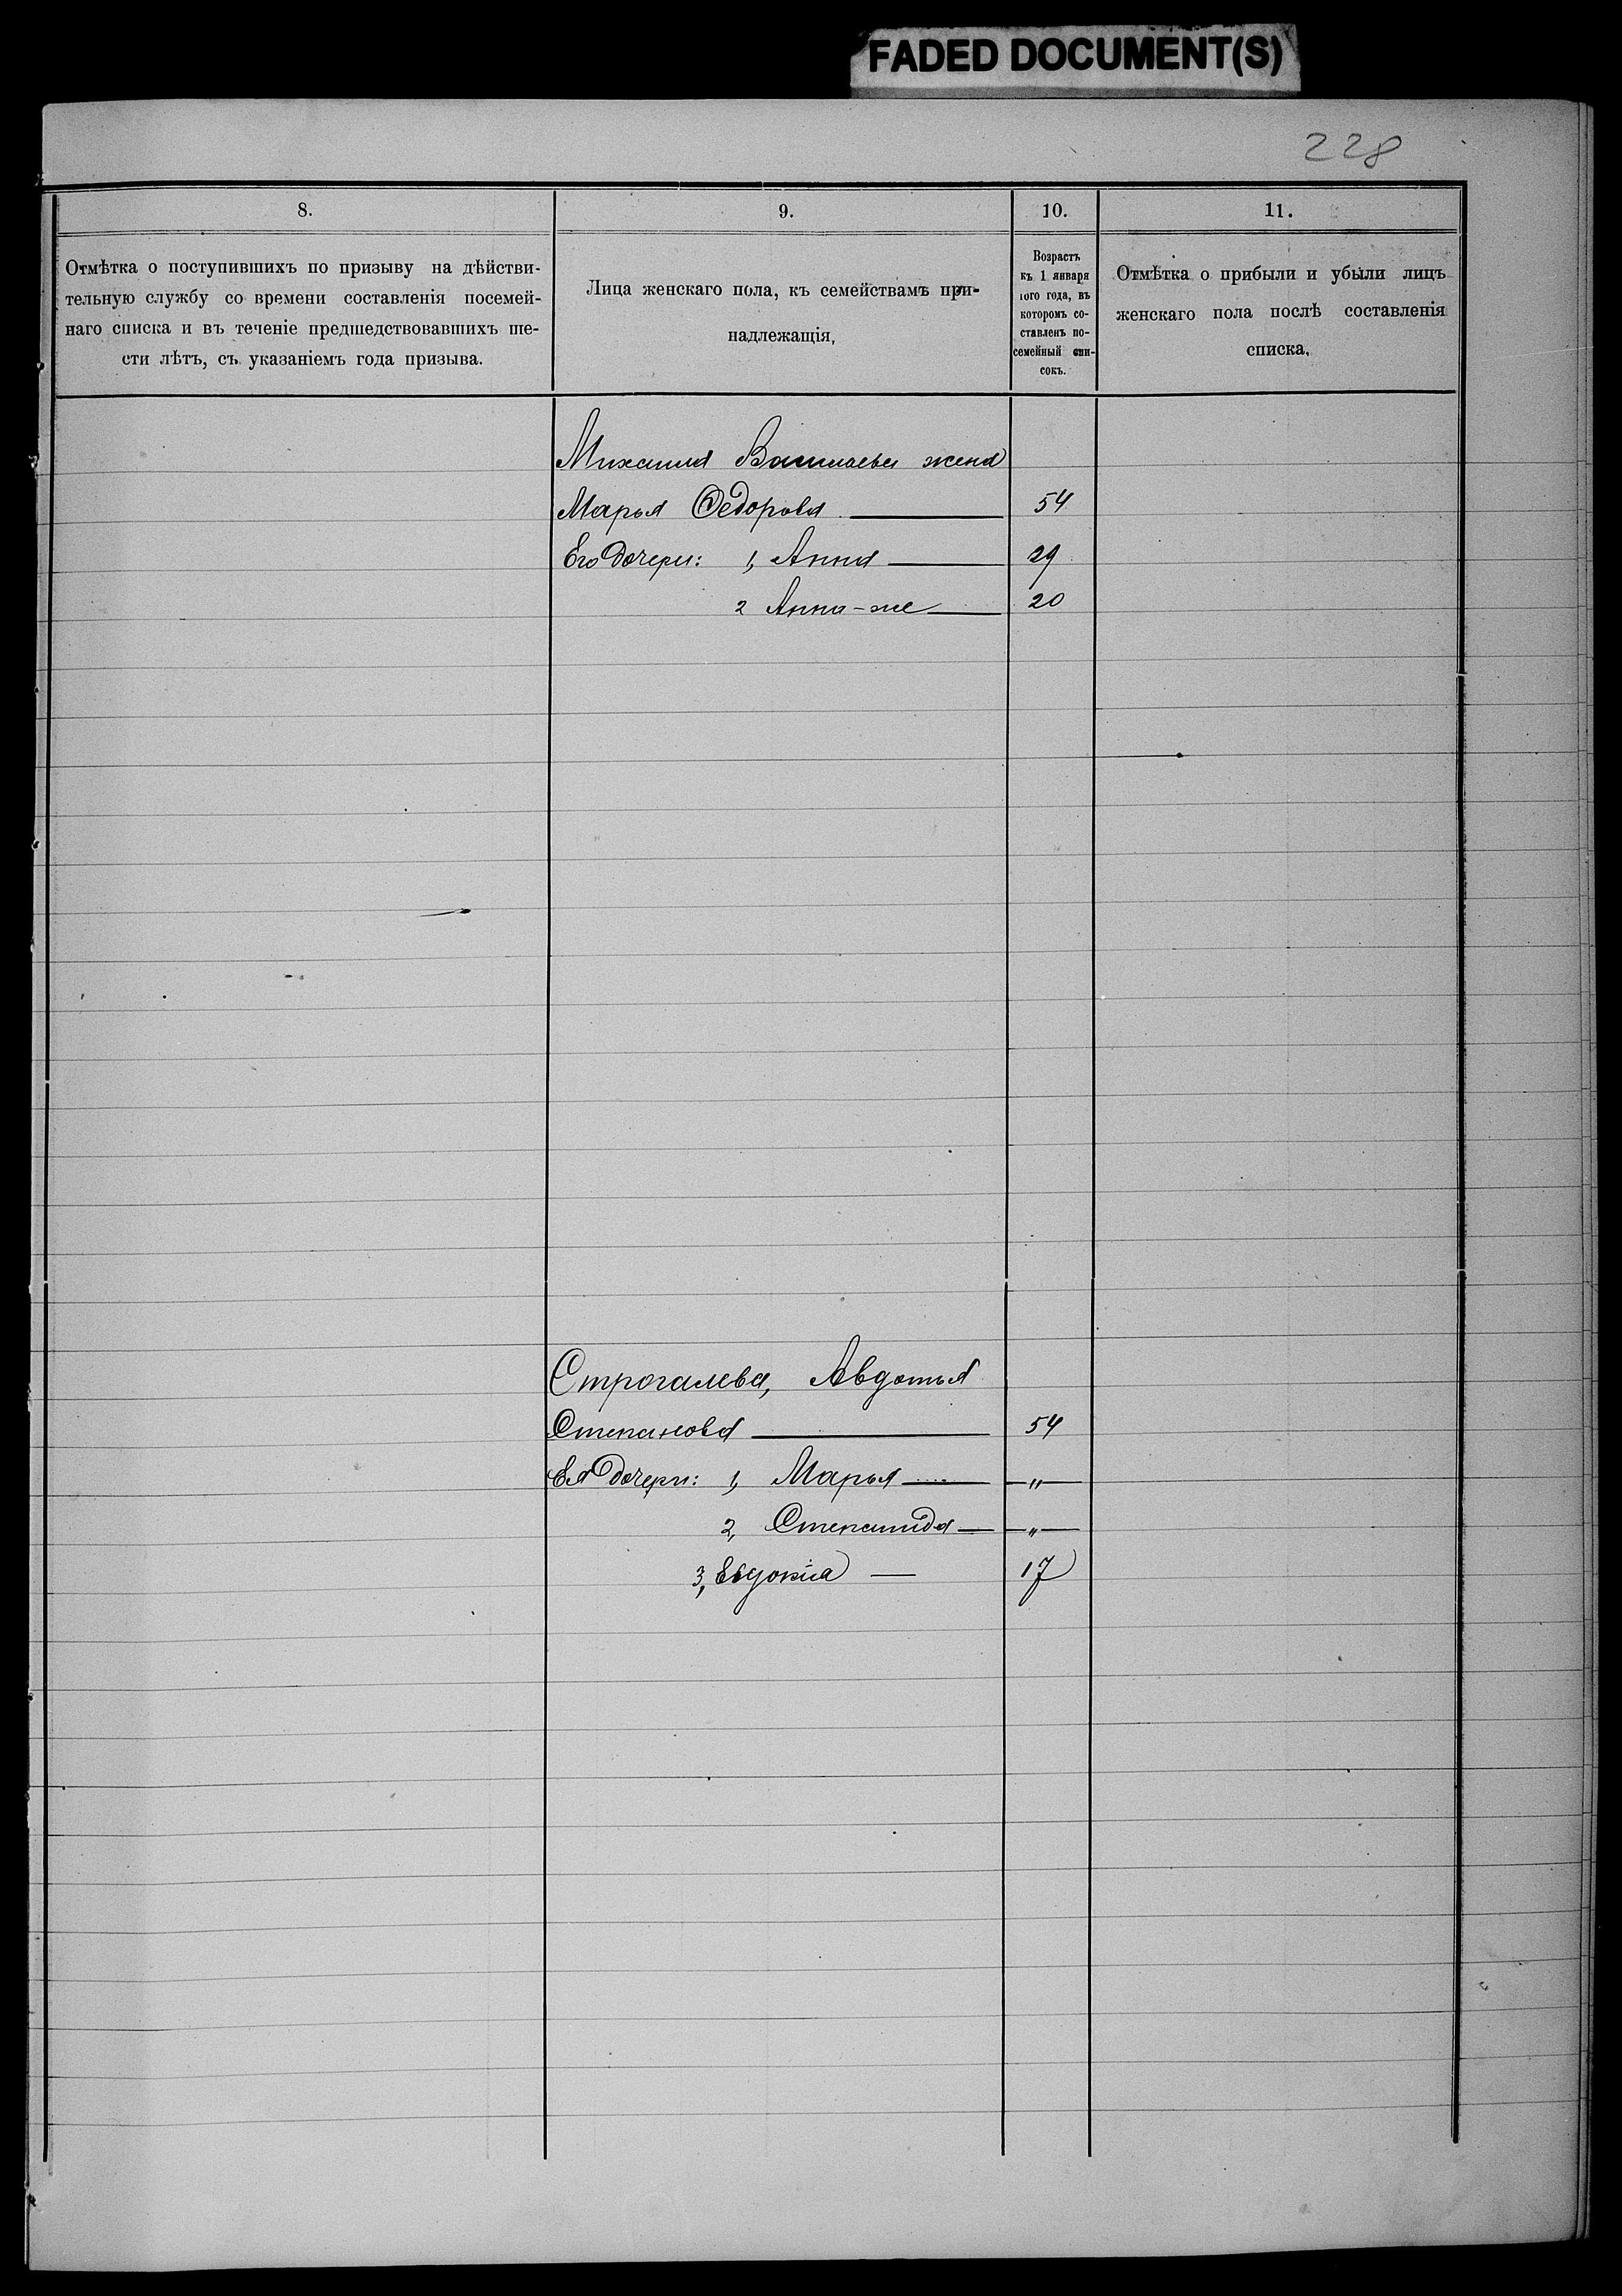 FADED DOCUMENT(S)
228
8.
9.
10.
11.
Отмѣтка о поступившихъ по призыву на дѣйстви-
тельную службу со времени составленія посемей-
наго списка и въ теченіе предшедствовавшихъ ше-
сти лѣтъ, съ указаніемъ года призыва.
Лица женскаго пола, къ семействамъ при-
надлежащія,
Возрастъ
къ 1 января
того года, въ
которомъ со-
ставленъ по-
семейный спи-
сокъ.
Отмѣтка о прибыли и убыли лицъ
женскаго пола послѣ составленія
списка,
Михаила Васильева жена
Марья Ѳедорова — 54
Его дочери: 1, Анна — 29
2 Анна-же — 20
Строгалева, Авдотья
Степанова — 54
Ея дочери: 1, Марья — — " —
2, Степанида — — " —
3, Евдокія — 17